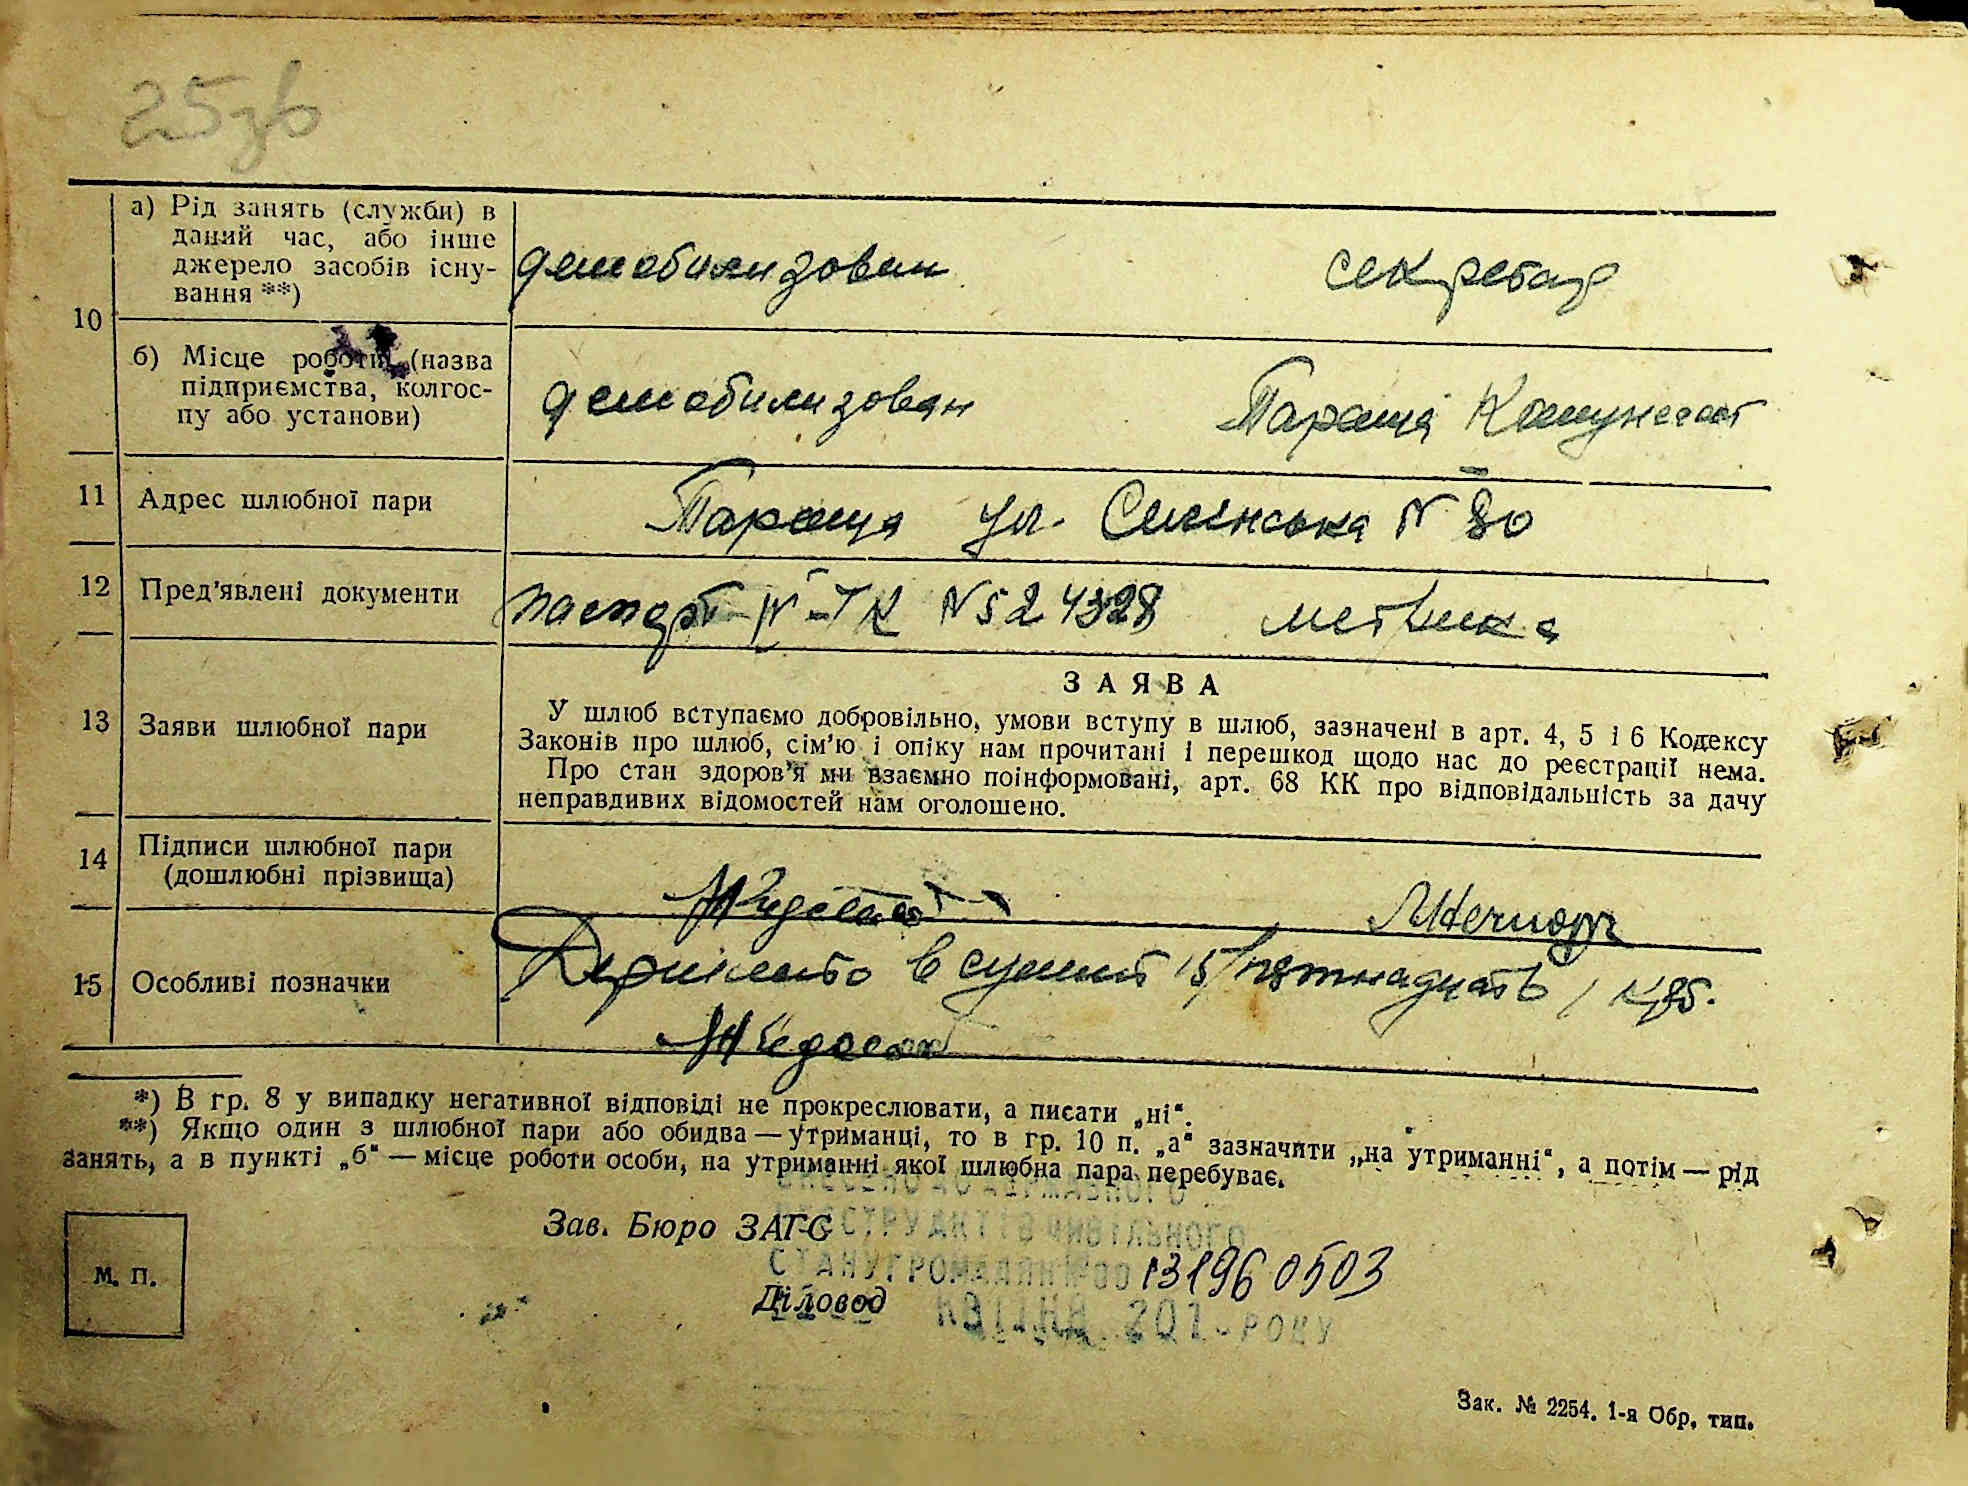 25зв
10
а) Рід занять (служби) в
даний час, або інше
джерело засобів існу-
вання **)
демобилизован
секретар
б) Місце роботи (назва
підприємства, колгос-
пу або установи)
демобилизован
Тараща
11
Адрес шлюбної пари
Тараща ул. N 80
12
Пред'явлені документи
паспорт N 524328 метрика
13
Заяви шлюбної пари
ЗАЯВА
У шлюб вступаємо добровільно, умови вступу в шлюб, зазначені в арт. 4, 5 і 6 Кодексу
Законів про шлюб, сім'ю і опіку нам прочитані і перешкод щодо нас до реєстрації нема.
Про стан здоров'я ми взаємно поінформовані, арт. 68 КК про відповідальність за дачу
неправдивих відомостей нам оголошено.
14
Підписи шлюбної пари
(дошлюбні прізвища)
15
Особливі позначки
в сумме 15 /пятнадцать/ крб.
*) В гр. 8 у випадку негативної відповіді не прокреслювати, а писати „ні“.
**) Якщо один з шлюбної пари або обидва — утриманці, то в гр. 10 п. „а“ зазначити „на утриманні“, а потім — рід
занять, а в пункті „б“ — місце роботи особи, на утриманні якої шлюбна пара перебуває.
ВНЕСЕНО ДО ДЕРЖАВНОГО
Зав. Бюро ЗАГС
РЕЄСТРУ АКТІВ ЦИВІЛЬНОГО
СТАНУ ГРОМАДЯН №00 131960503
Діловод
РОКУ
М. П.
Зак. № 2254. 1-я Обр. тип.